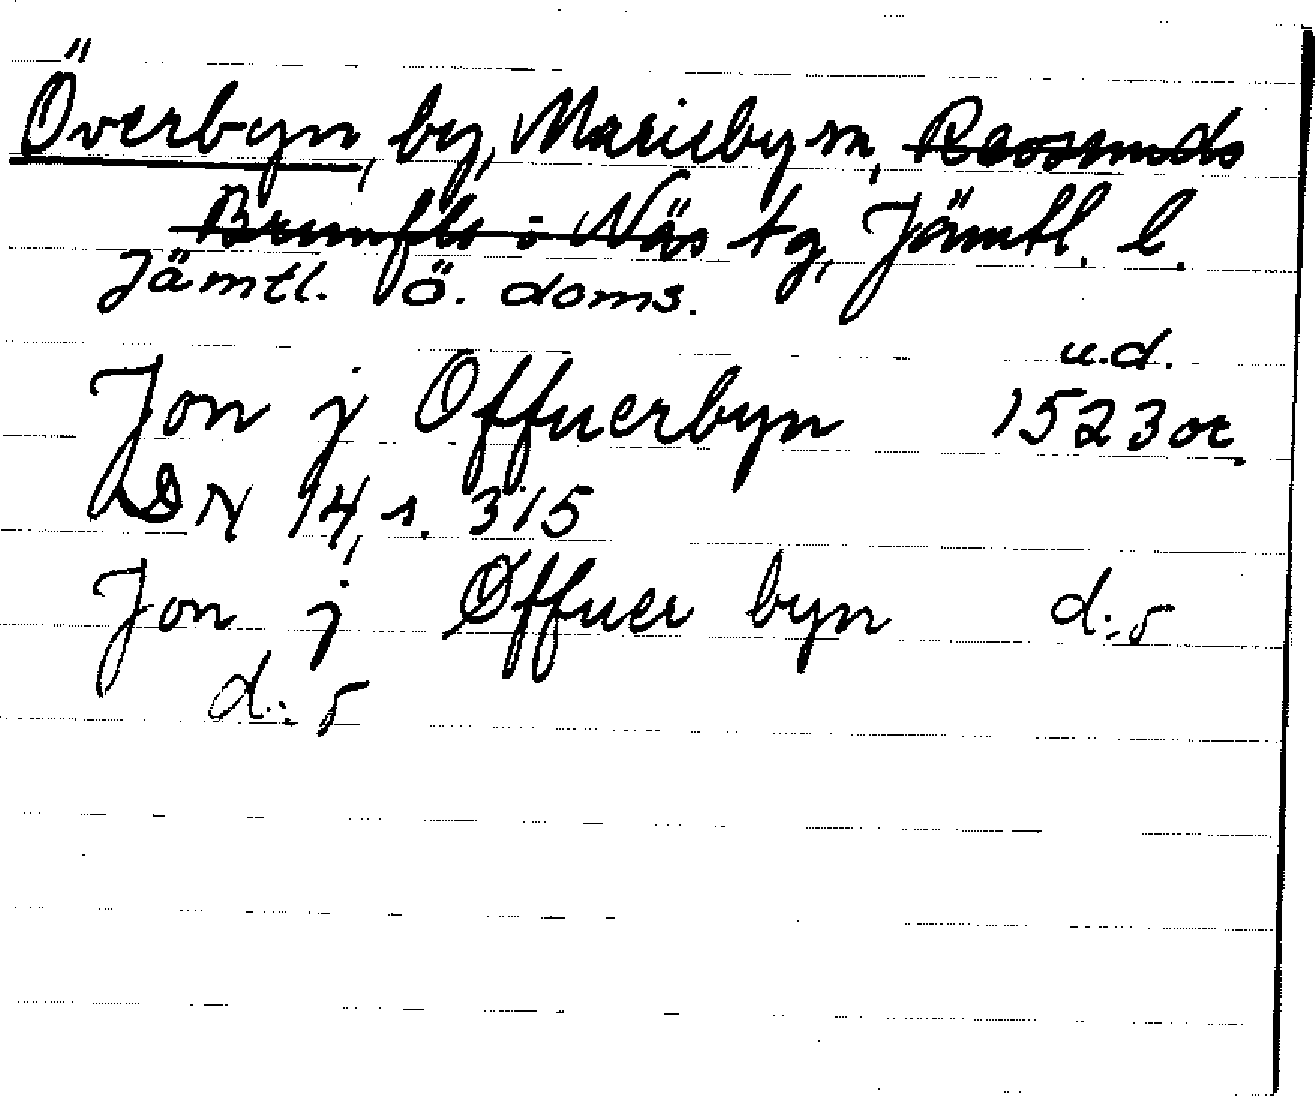 Överbyn, by, Marieby sn, Revsunds
Brunflo o Näs tg, Jämtl. l.
Jämtl. ö. doms.
u.d.
Jon j Offuerbyn 1523 or.
DN 14, s. 315
Jon j Øffuer byn d:o
d:o